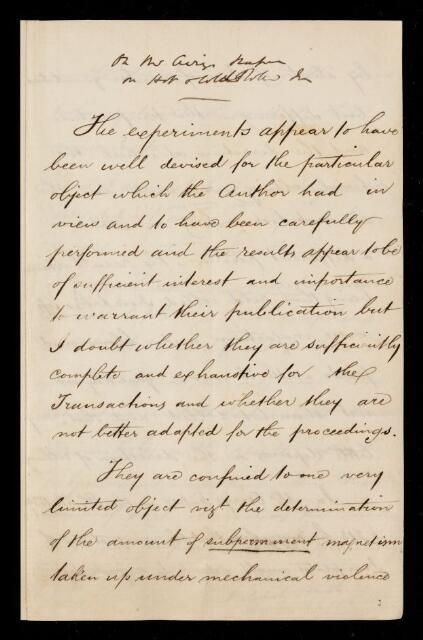 On Mr Airy's Paper
on Hot & Cold Rolled Iron
The experiments appear to have
been well devised for the particular
object which the Author had in
view and to have been carefully
performed and the results appear to be
of sufficient interest and importance
to warrant their publication but
I doubt whether they are sufficiently
complete and exhaustive for the
Transactions and whether they are
not better adapted for the proceedings.
They are confined to one very
limited object vizt the determination
of the amount of subpermanent magnetism
taken up under mechanical violence